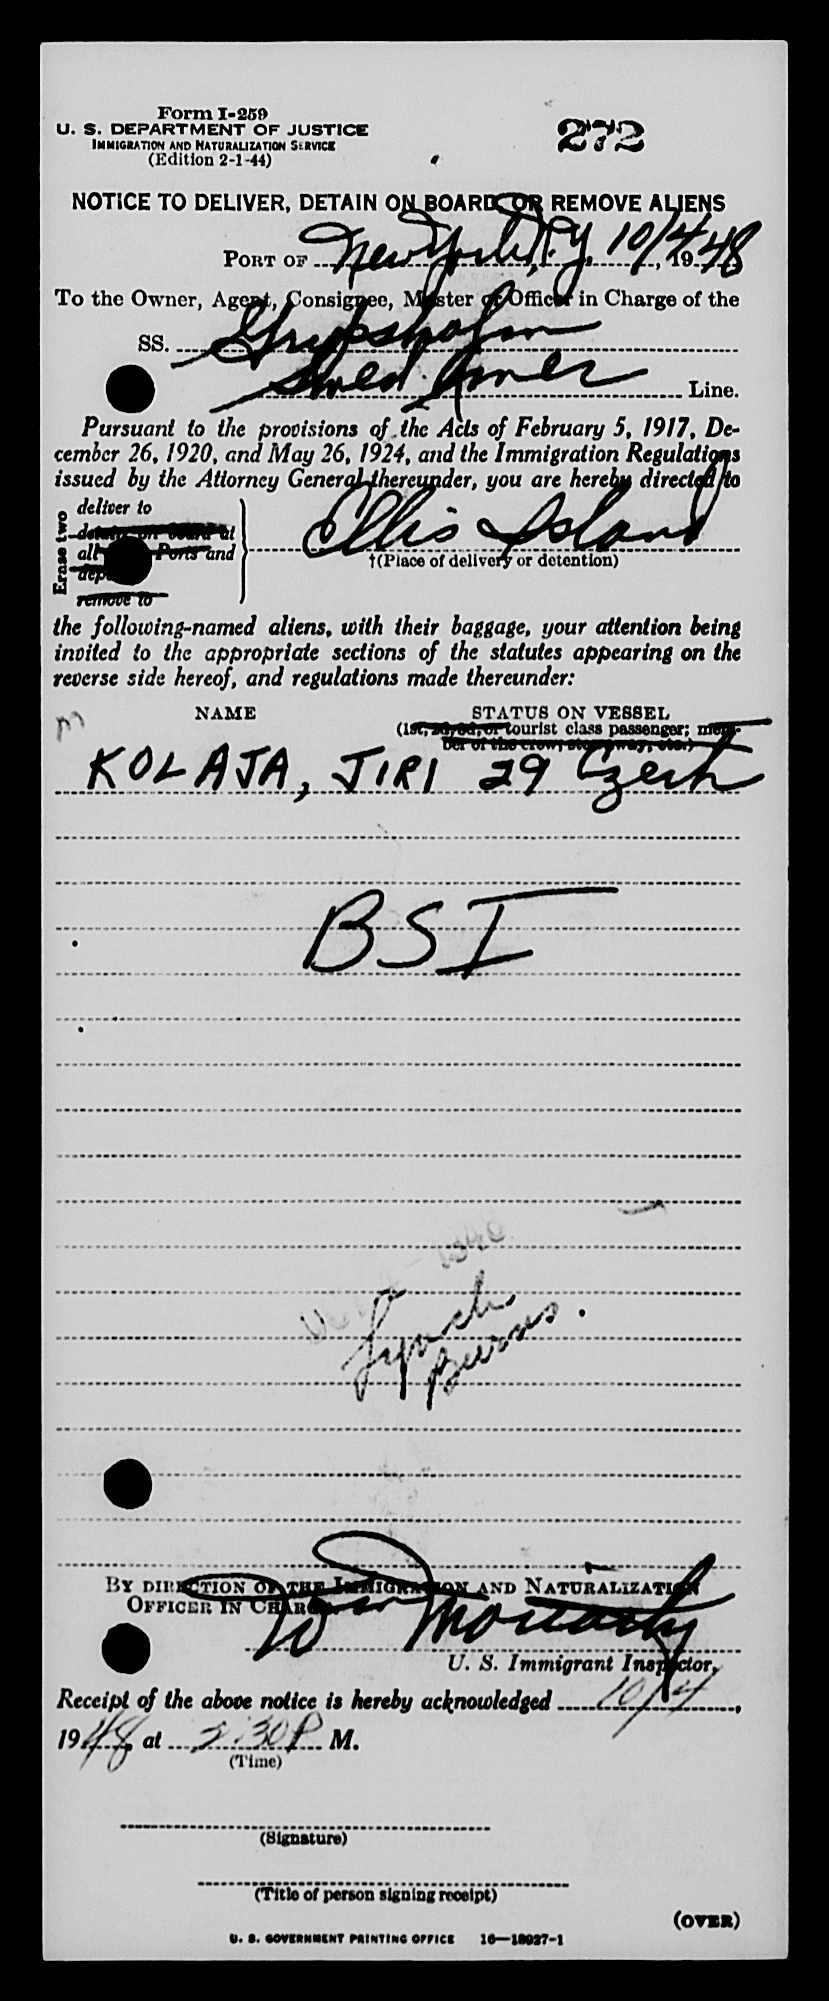 Form I-259
U. S. DEPARTMENT OF JUSTICE
IMMIGRATION AND NATURALIZATION SERVICE
(Edition 2-1-44)
272
NOTICE TO DELIVER, DETAIN ON BOARD, OR REMOVE ALIENS
PORT OF New York, N.Y. 10/4, 1948
To the Owner, Agent, Consignee, Master or Officer in Charge of the
SS. Gripsholm
Swed. Amer Line.
Pursuant to the provisions of the Acts of February 5, 1917, De-
cember 26, 1920, and May 26, 1924, and the Immigration Regulations
issued by the Attorney General thereunder, you are hereby directed to
Erase two
deliver to
detain on board at
all Ports and
remove to
Ellis Island
†(Place of delivery or detention)
the following-named aliens, with their baggage, your attention being
invited to the appropriate sections of the statutes appearing on the
reverse side hereof, and regulations made thereunder:
NAME STATUS ON VESSEL
(1st, 2d, 3d, or tourist class passenger; mem-
ber of the crew, stowaway, etc.)
KOLAJA, JIRI 29 Czech
BSI
Lynch
Burns.
BY DIRECTION OF THE IMMIGRATION AND NATURALIZATION
OFFICER IN CHARGE
Wm Moriarty
U. S. Immigrant Inspector,
Receipt of the above notice is hereby acknowledged 10/4,
1948, at 2:30 P M.
(Time)
(Signature)
(Title of person signing receipt)
(OVER)
U. S. GOVERNMENT PRINTING OFFICE 16—18027-1